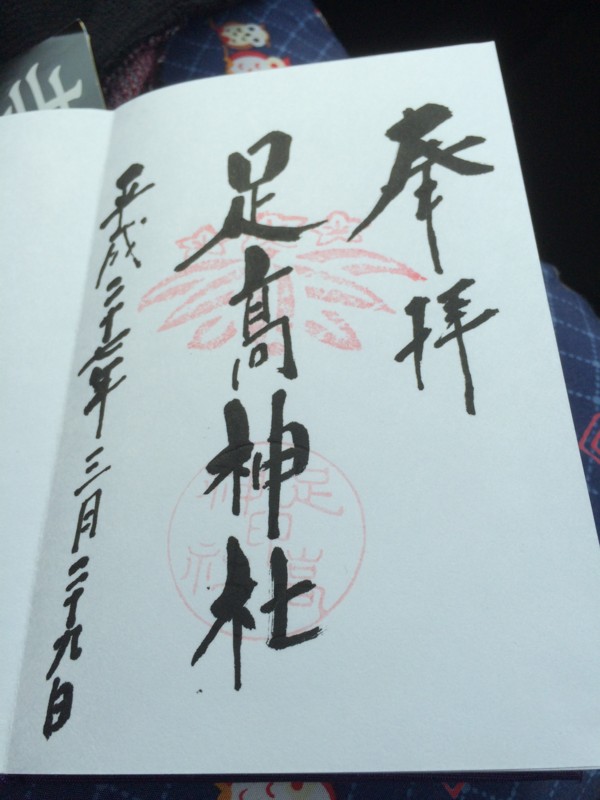 奉拝
足高神社
平成二十七年三月二十九日
足高
神社